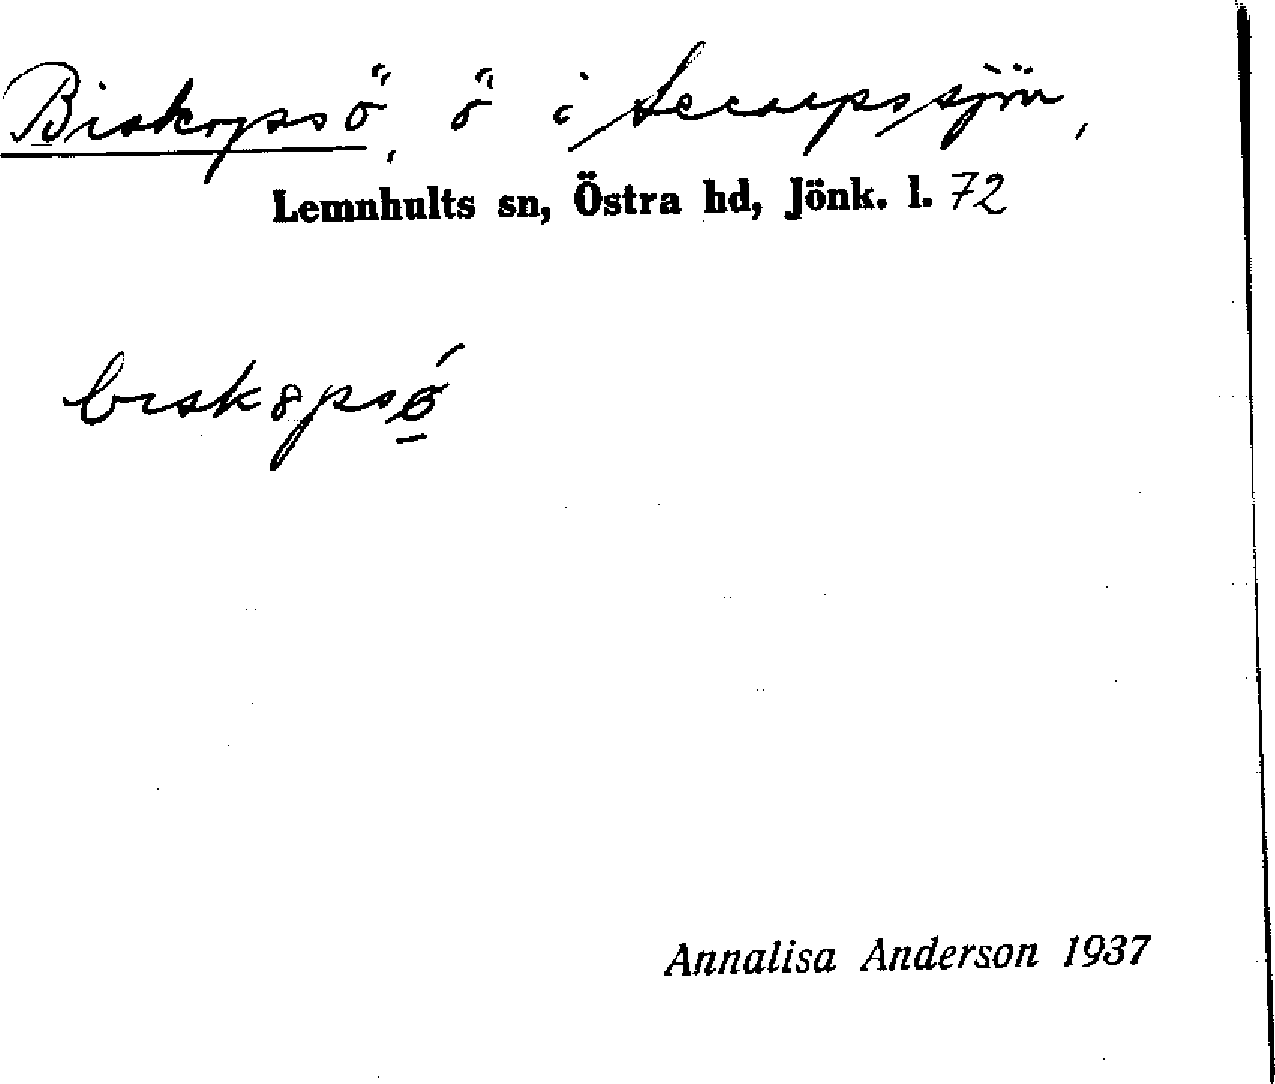 Biskopsö, ö i
Lemnhults sn, Östra hd, Jönk. l. 72
Annalisa Anderson 1937